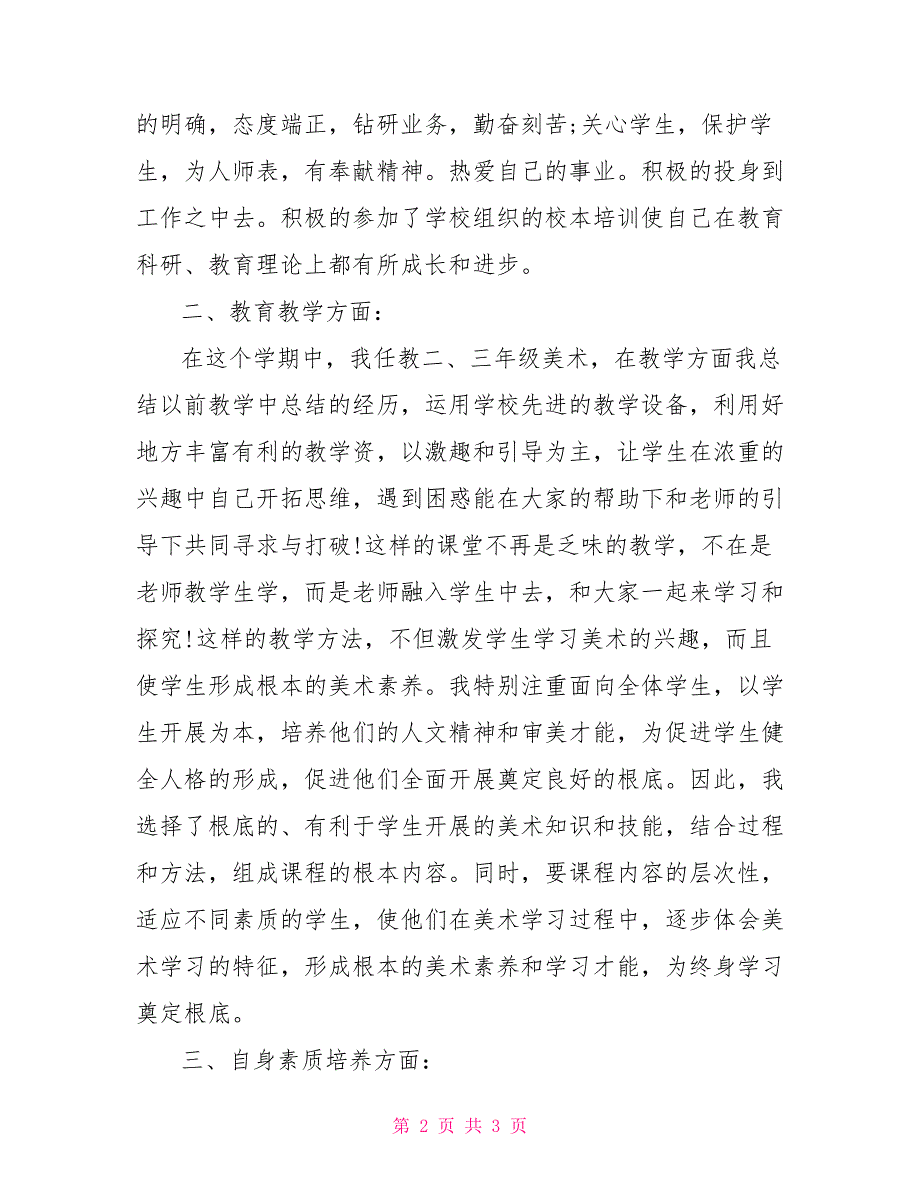 的明确，态度端正，钻研业务，勤奋刻苦;关心学生，保护学
生，为人师表，有奉献精神。热爱自己的事业。积极的投身到
工作之中去。积极的参加了学校组织的校本培训使自己在教育
科研、教育理论上都有所成长和进步。
二、教育教学方面：
在这个学期中，我任教二、三年级美术，在教学方面我总
结以前教学中总结的经历，运用学校先进的教学设备，利用好
地方丰富有利的教学资，以激趣和引导为主，让学生在浓重的
兴趣中自己开拓思维，遇到困惑能在大家的帮助下和老师的引
导下共同寻求与打破!这样的课堂不再是乏味的教学，不在是
老师教学生学，而是老师融入学生中去，和大家一起来学习和
探究!这样的教学方法，不但激发学生学习美术的兴趣，而且
使学生形成根本的美术素养。我特别注重面向全体学生，以学
生开展为本，培养他们的人文精神和审美才能，为促进学生健
全人格的形成，促进他们全面开展奠定良好的根底。因此，我
选择了根底的、有利于学生开展的美术知识和技能，结合过程
和方法，组成课程的根本内容。同时，要课程内容的层次性，
适应不同素质的学生，使他们在美术学习过程中，逐步体会美
术学习的特征，形成根本的美术素养和学习才能，为终身学习
奠定根底。
三、自身素质培养方面：
第 2 页 共 3 页